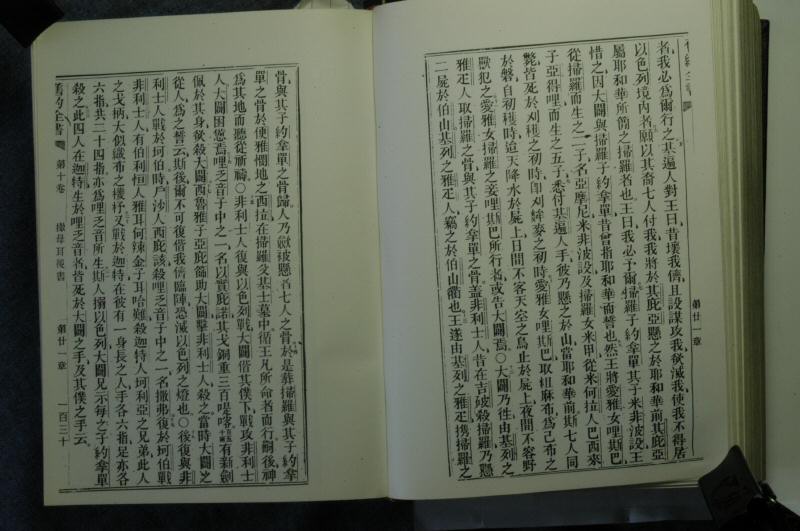 者、我必為爾行之、基遍人對王曰、昔壞我儕、且設謀攻我、欲滅我、使我不得居
以色列境內者、願以其裔七人付我、我將於其庇亞懸之於耶和華前、其庇亞
屬耶和華所簡之掃羅者也、王曰、我必予爾、掃羅子約拿單其子米非波設、王
惜之、因大闢與掃羅子約拿單昔曾指耶和華而誓也、然王將愛雅女哩斯巴
從掃羅而生之二子、名亞摩尼、米非波設、及掃羅女米甲從米何拉人巴西來
子亞得哩而生之五子、悉付基遍人手、彼乃懸之於山、當耶和華前、七人同
斃、皆死於刈穫之初時、即刈麰麥之初時、愛雅女哩斯巴取粗麻布、為己布之
於磐、自初穫時迨天降水於屍上、日間不容天空之鳥止於屍上、夜間不容野
獸犯之、愛雅女掃羅之妾哩斯巴所行者、或告大闢焉、○大闢乃往、由基列之
雅疋人取掃羅之骨、與其子約拿單之骨、蓋非利士人昔在吉破殺掃羅、乃懸
二屍於伯山、由基列之雅疋人竊之於伯山衢也、王遂由基列之雅疋人攜掃羅之
第廿一章
骨、與其子約拿單之骨歸、人乃歛被懸者七人之骨、於是葬掃羅與其子約拿
單之骨、於便雅憫地之西拉、在掃羅父基士墓中、循王凡所命者而行、嗣後、神
為其地而聽從祈禱、○非利士人復與以色列戰、大闢偕其僕下、戰攻非利士
人、大闢困憊焉、哩乏音子中之一、名以實庇諾、其戈銅重三百
佩於其身、欲殺大闢、西魯雅子亞庇篩助大闢、擊非利士人殺之、當時大闢之
從人、為之誓云、斯後、爾不可復偕我儕臨陣、恐滅以色列之燈也、○後復與非
利士人戰於坷伯、時戶沙人西庇該殺哩乏音子中之一、名撒弗、復於坷伯戰
非利士人、有伯利恒人雅耳何辣金子耳哈難、殺迦特人坷利亞之兄弟、此人
之戈柄大似織布之機杼、又戰於迦特、在彼有一身長之人、手各六指、足亦各
六指、共二十四指、亦為哩乏音所生、斯人搦以色列、大闢兄示每之子約拿單
殺之、此四人在迦特生於哩乏音者、皆死於大闢之手、及其僕之手云、
舊約全書 第十卷 撒母耳後書 第廿一章 一百三十